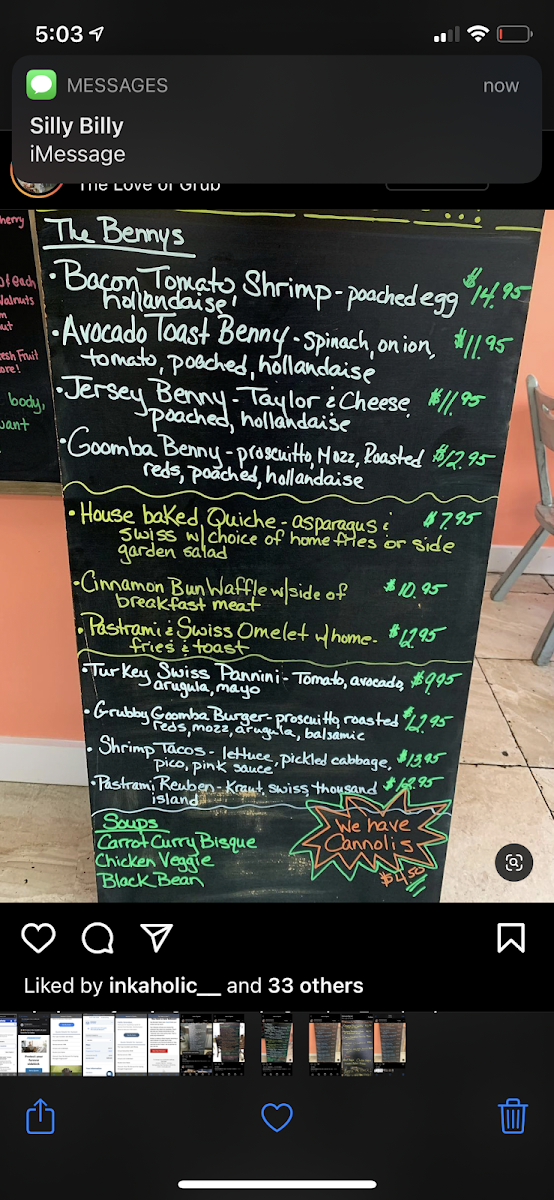 5:03
MESSAGES
now
Silly Billy
iMessage
The Love of Grub
The Bennys
• Bacon Tomato Shrimp - poached egg $14.95
hollandaise
• Avocado Toast Benny - spinach, onion, $11.95
tomato, poached, hollandaise
• Jersey Benny - Taylor & Cheese, $11.95
poached, hollandaise
• Goomba Benny - proscuitto, Mozz, Roasted $12.95
reds, poached, hollandaise
• House baked Quiche - asparagus & $7.95
swiss w/ choice of home fries or side
garden salad
• Cinnamon Bun Waffle w/ side of $10.95
breakfast meat
• Pastrami & Swiss Omelet w/ home- $12.95
fries & toast
• Turkey Swiss Pannini - Tomato, avocado, $9.95
arugula, mayo
• Grubby Goomba Burger - proscuitto, roasted $12.95
reds, mozz, arugula, balsamic
• Shrimp Tacos - lettuce, pickled cabbage, $13.95
pico, pink sauce
• Pastrami Reuben - Kraut, swiss, thousand
island
Soups
Carrot Curry Bisque
Chicken Veggie
Black Bean
We have
Cannolis
$4.50
herry
each
Walnuts
esh Fruit
ore!
body,
want
Liked by inkaholic__ and 33 others